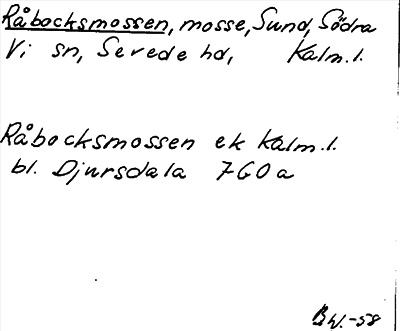 Råbocksmossen, mosse, Sund, Södra
Vi sn, Serede hd, Kalm.l.
Råbocksmossen ek Kalm.l.
bl. Djursdala 7GOa
BW.-58